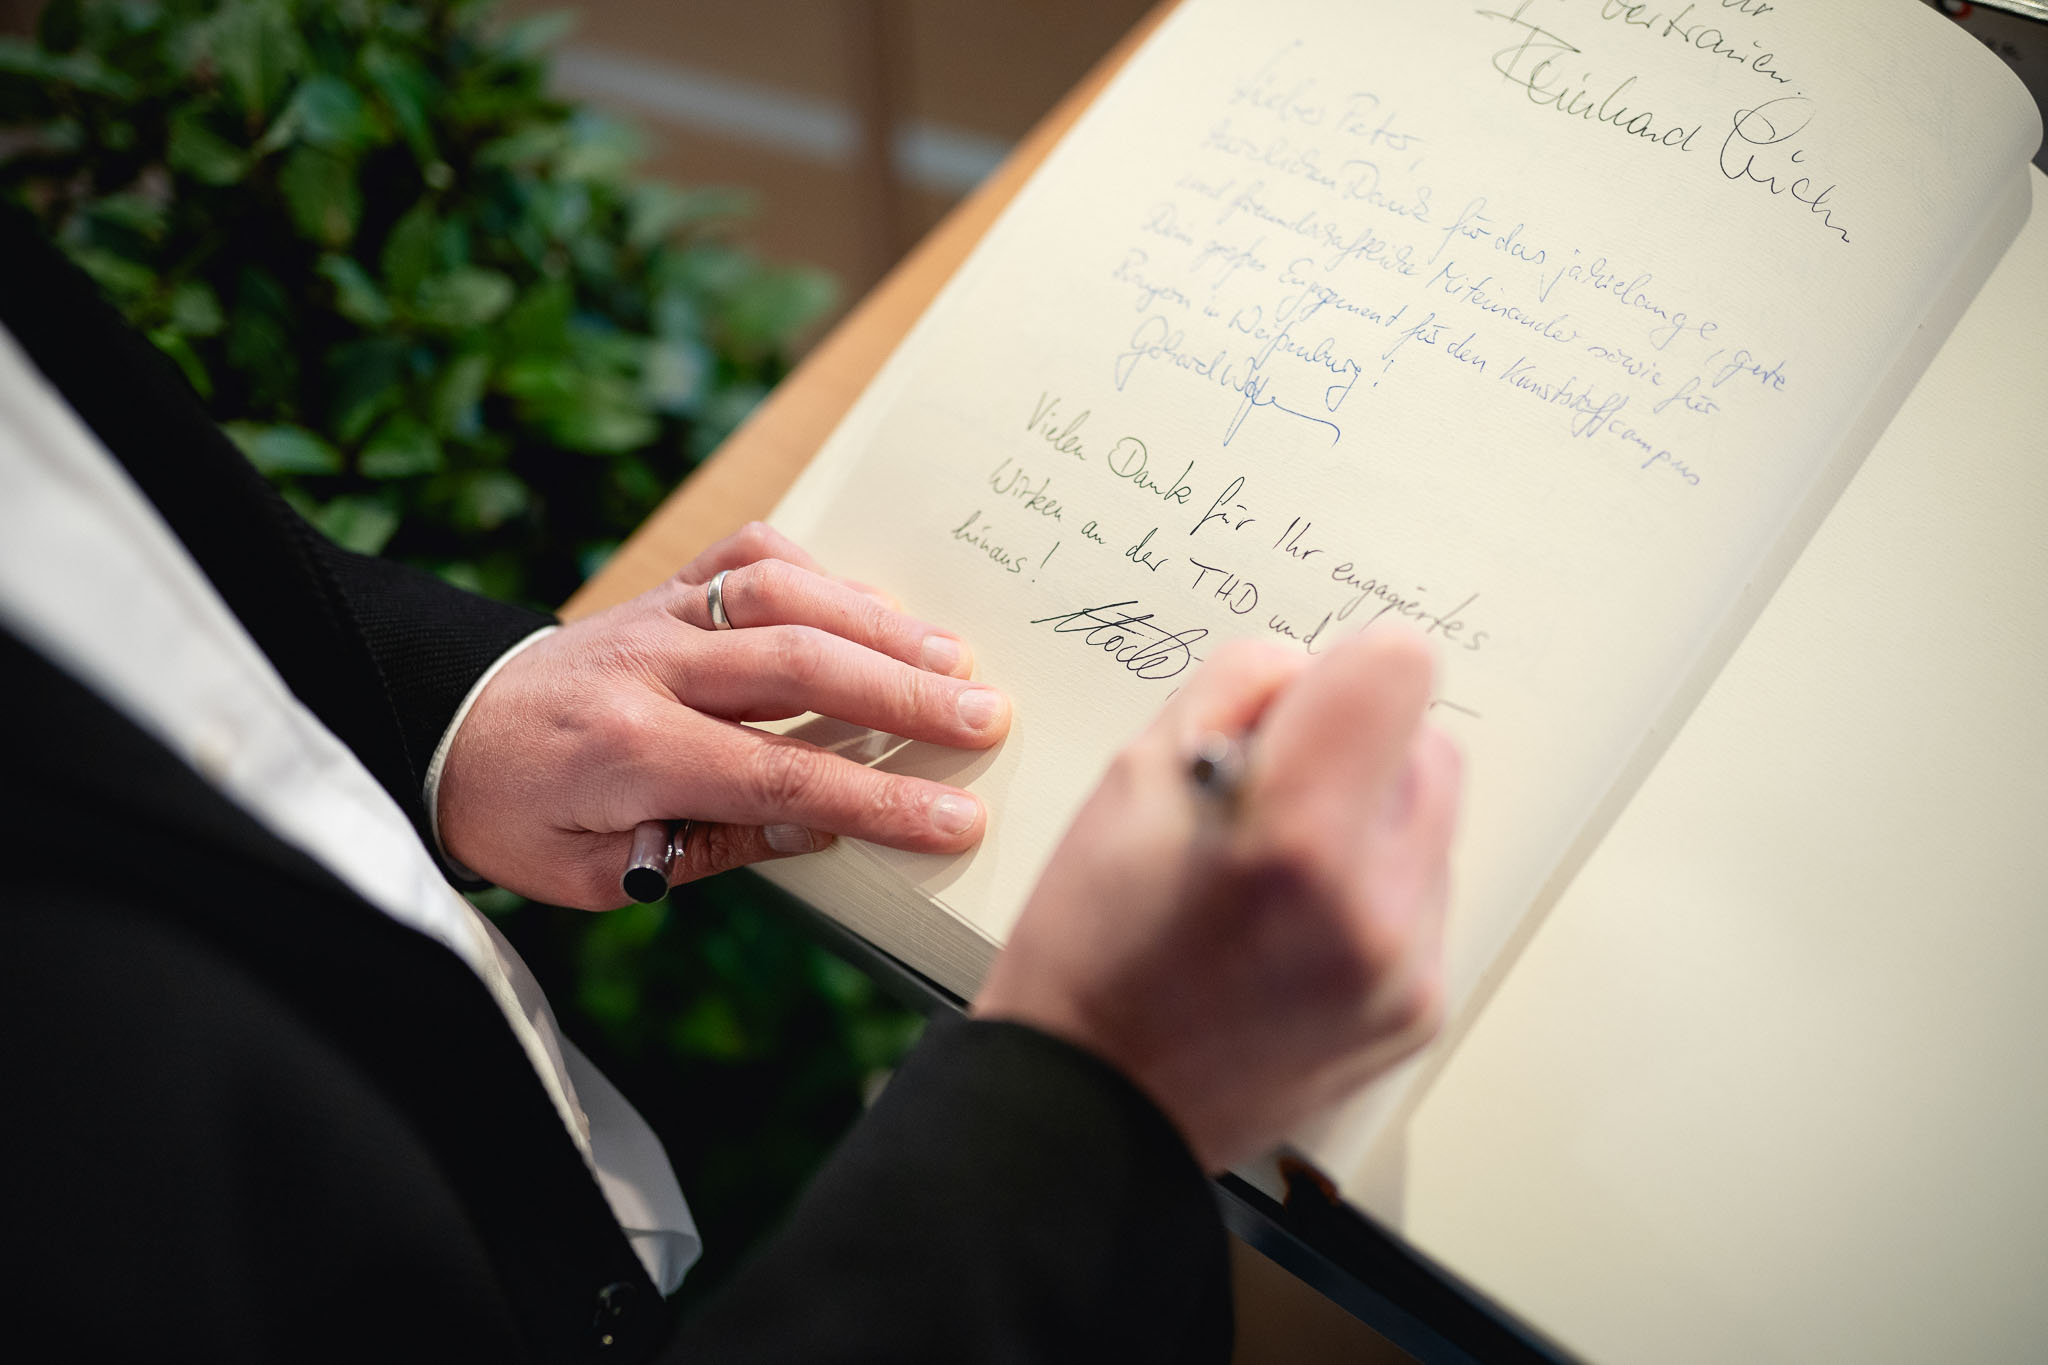 Vertrauen.
Reinhard
Lieber Peter,
Herzlichen Dank für das jahrelange, gute
und freundschaftliche Miteinander sowie für
Dein großes Engagement für den Kunststoffcampus
Bayern in Weißenburg!
Vielen Dank für Ihr engagiertes
Wirken an der THD und
hinaus!